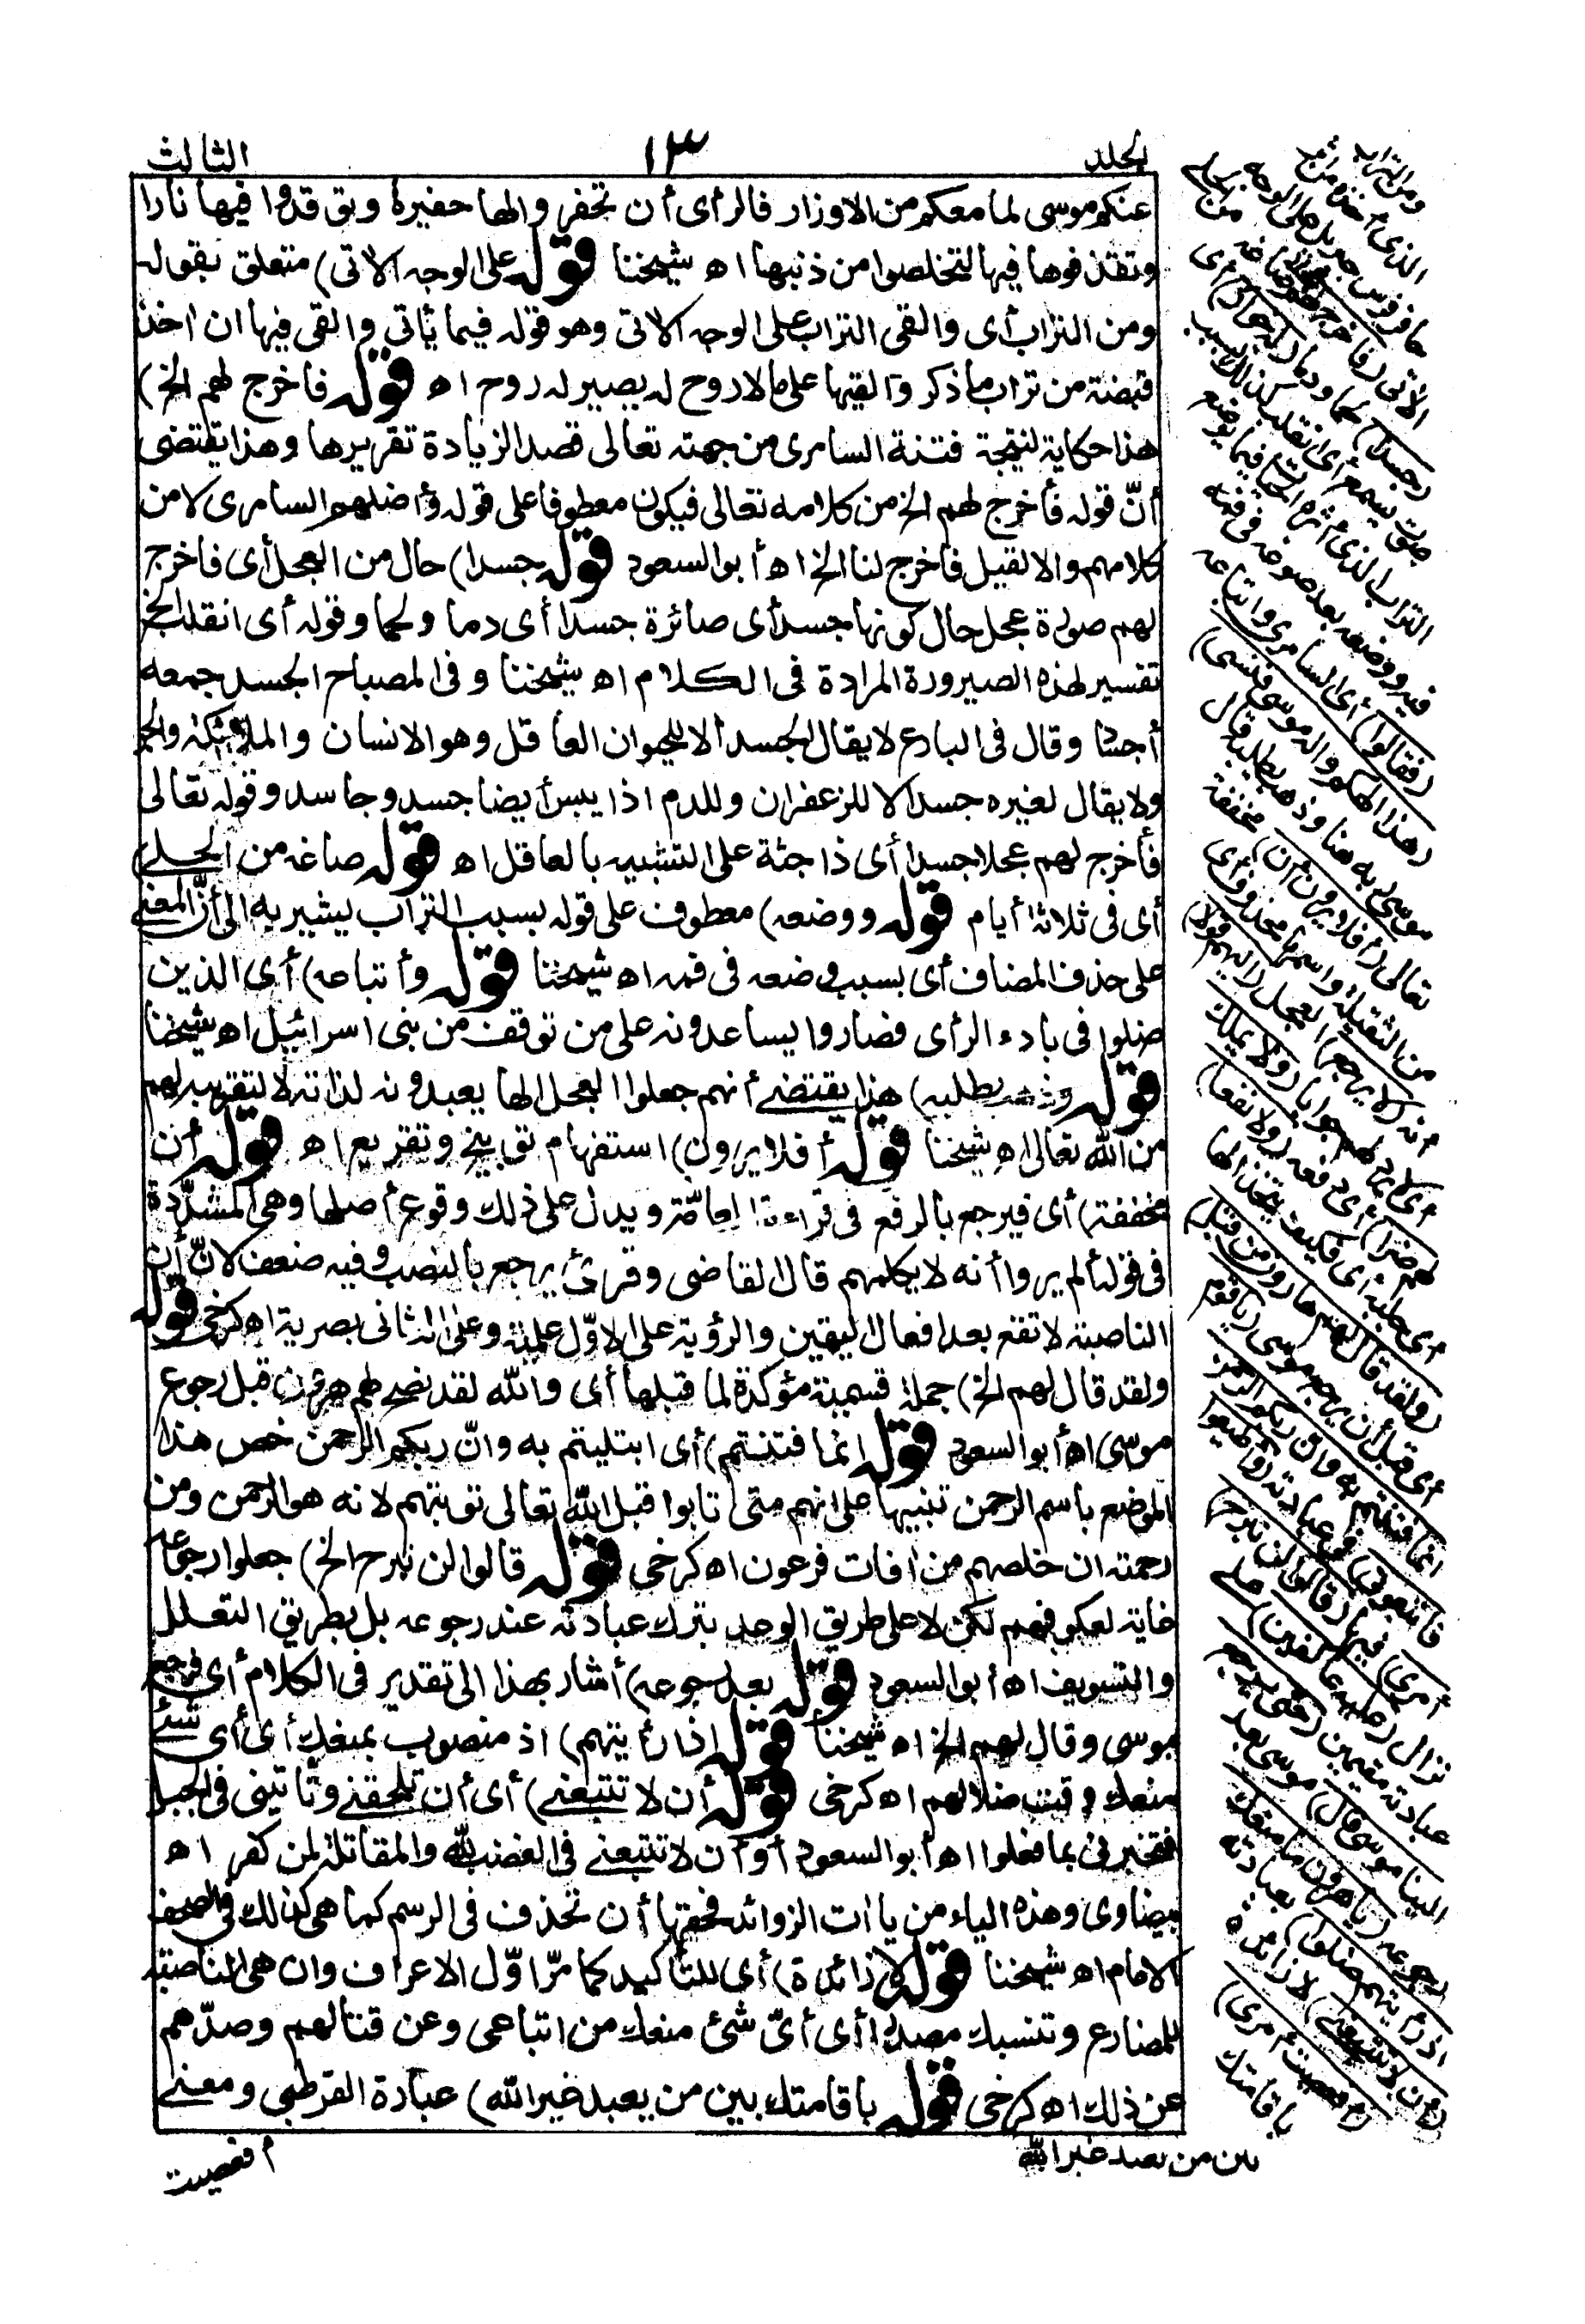 الجلد ١٣ الثالث
عنكم موسى لما معكم من الاوزار فالرأى أن تحفروا لها حفيرة وتوقدوا فيها نارا
وتقذفوها فيها لتخلصوا من ذنبها اه شيخنا قوله على الوجه الآتى) متعلق بقوله
ومن التراب أى والقى التراب على الوجه الآتى وهو قوله فيما يأتى والقى فيها ان اخذ
قبضة من تراب ما ذكر وألقيها على ما لا روح له يصير له روح اه قوله فاخرج لهم الخ)
هذا حكاية لنتيجة فتنة السامرى من جهته تعالى قصد الزيادة تقريرها وهذا يقتضى
أنّ قوله فأخرج لهم الخ من كلامه تعالى فيكون معطوفا على قوله وأضلهم السامرى لا من
كلامهم والا لقيل فاخرج لنا الخ اه أبو السعود قوله جسدا) حال من العجل أى فاخرج
لهم صورة عجل حال كونها جسدا أى صائرة جسدا أى دما ولحما وقوله أى انقلب الخ
تفسير لهذه الصيرورة المرادة فى الكلام اه شيخنا وفى المصباح الجسد جمعه
أجساد وقال فى البارع لا يقال الجسد الا للحيوان العاقل وهو الانسان والملائكة والجن
ولا يقال لغيره جسد الا للزعفران وللدم اذا يبس أيضا جسد وجاسد وقوله تعالى
فأخرج لهم عجلا جسدا أى ذا جثة على التشبيه بالعاقل اه قوله صاغه من الحلى)
أى فى ثلاثة أيام قوله ووضعه) معطوف على قوله بسبب التراب يشير به الى أنّ المعنى
على حذف المضاف أى بسبب وضعه فى فمه اه شيخنا قوله وأتباعه) أى الذين
ضلوا فى بادء الرأى فصاروا يساعدونه على من توقف من بنى اسرائيل اه شيخنا
قوله وذهب يطلبه) هذا يقتضى أنهم جعلوا العجل الها يعبدونه لذاته لا لتقريبه لهم
من الله تعالى اه شيخنا قوله أفلا يرون) استفهام توبيخ وتقريع اه قوله أن
مخففة) أى فيرجع بالرفع فى قراءة العامّة ويدل على ذلك وقوع أصلها وهى المشدّدة
فى قوله ألم يروا أنه لا يكلمهم قال القاضى وقرئ يرجع بالنصب وفيه ضعف لانّ أن
الناصبة لا تقع بعد افعال اليقين والرؤية على الاوّل علمية وعلى الثانى بصرية اه كرخى قوله
ولقد قال لهم الخ) جملة قسمية مؤكدة لما قبلها أى والله لقد نصح لهم هرون قبل رجوع
موسى اه أبو السعود قوله انما فتنتم) أى ابتليتم به وانّ ربكم الرحمن خص هذا
الموضع باسم الرحمن تنبيها على انهم متى تابوا قبل الله تعالى توبتهم لانه هو الرحمن ومن
رحمته ان خلصهم من افات فرعون اه كرخى قوله قالوا لن نبرح الخ) جعلوا رجوعه
غاية لعكوفهم لكن لا على طريق الوعد بترك عبادته عند رجوعه بل بطريق التعلل
والتسويف اه أبو السعود قوله بعد رجوعه) أشار بهذا الى تقدير فى الكلام أى فرجع
موسى وقال لهم الخ اه شيخنا قوله اذ رأيتهم) اذ منصوب بمنعك أى أى شئ
منعك وقت ضلالهم اه كرخى قوله أن لا تتبعنى) أى أن تلحقنى وتأتينى فى الجبل
فتخبرنى بما فعلوا اه أبو السعود أو أن لا تتبعنى فى الغضب لله والمقاتلة لمن كفر اه
بيضاوى وهذه الياء من يا ات الزوائد فحقها أن تحذف فى الرسم كما هى كذلك فى المصحف
الامام اه شيخنا قوله لا زائدة) أى للتأكيد كما مرّ اوّل الاعراف وان هى الناصبة
للمضارع وتنسبك مصدرا أى أىّ شئ منعك من اتباعى وعن قتالهم وصدّهم
عن ذلك اه كرخى قوله باقامتك بين من يعبد غير الله) عبارة القرطبى ومعنى
أفعصيت
ومن التراب
الذى أخذه من أثر
حافر فرس جبريل على الوجه
الآتى (فأخرج لهم عجلا) صاغه من الحلى
(جسدا) لحما ودما (له خوار) أى
صوت يسمع أى انقلب كذلك بسبب
التراب الذى أثره الحياة فيما يوضع
فيه ووضعه بعد صوغه فى فمه
(فقالوا) أى السامرى وأتباعه
(هذا الهكم واله موسى فنسى)
موسى ربه هنا وذهب يطلبه قال
تعالى (أفلا يرون أن) مخففة
من الثقيلة واسمها محذوف أى
أنه (لا يرجع) العجل (اليهم قولا)
أى لا يرد لهم جوابا (ولا يملك
لهم ضرا) أى دفعه (ولا نفعا)
أى جلبه أى فكيف يتخذ الها
(ولقد قال لهم هارون من قبل)
أى قبل أن يرجع موسى (يا قوم
انما فتنتم به وان ربكم الرحمن
فاتبعونى) فى عبادته (وأطيعوا
أمرى) فيها (قالوا لن نبرح)
نزال (عليه عاكفين) على
عبادته مقيمين (حتى يرجع
الينا موسى قال) موسى بعد
رجوعه (ياهرون ما منعك
اذ رأيتهم ضلوا) بعبادته
(أن لا تتبعنى) لا زائدة
(أفعصيت أمرى)
باقامتك
بين من يعبد غير الله